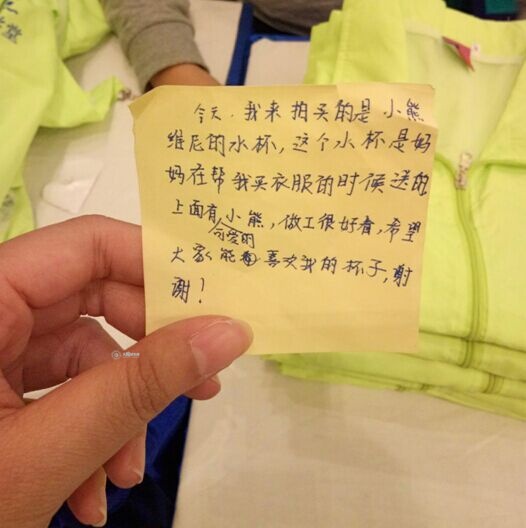 堂
今天，我来拍买的是小熊
维尼的水杯，这个水杯是妈
妈在帮我买衣服的时候送的
上面有可爱的小熊，做工很好看，希望
大家能喜欢我的杯子，谢
谢！